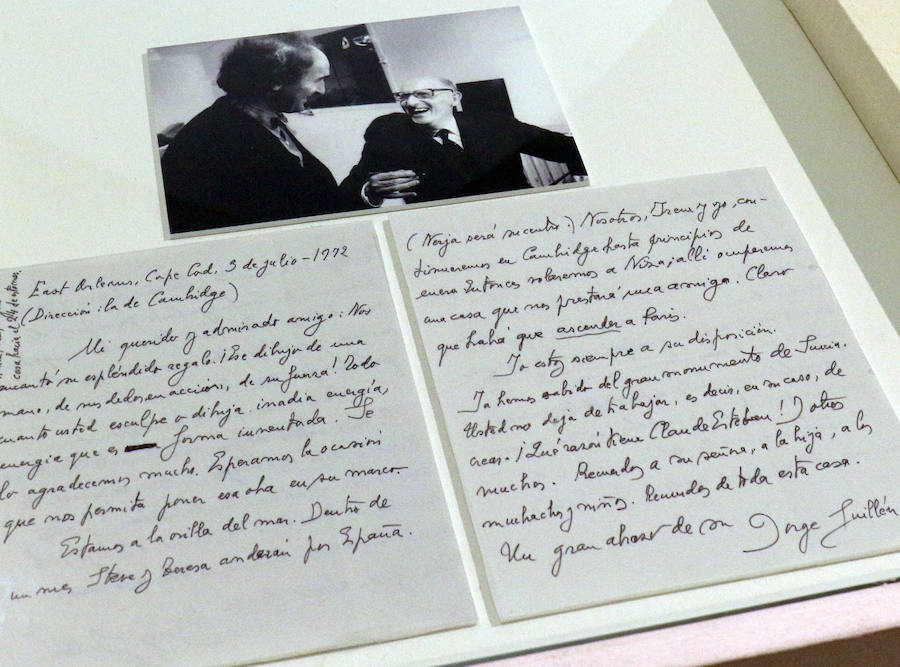 East Orleans, Cape Cod, 3 de julio - 1972
(Dirección: la de Cambridge)
Mi querido y admirado amigo: Nos
encantó su espléndido regalo. ¡Ese dibujo de una
mano, de sus dedos en acción, de su fuerza! Todo
cuanto usted esculpe o dibuja irradia energía,
energía que es forma inventada. Se
lo agradecemos mucho. Esperamos la ocasión
que nos permita poner esa obra en su marco.
Estamos a la orilla del mar. Dentro de
un mes Steve y Teresa andarán por España.
casa hacia el 24 de
( será su centro.) Nosotros, Irene y yo, con-
tinuaremos en Cambridge hasta principios de
enero. Entonces volaremos a Niza; allí ocuparemos
una casa que nos prestará una amiga. Claro
que habrá que ascender a París.
Yo estoy siempre a su disposición.
Ya hemos sabido del gran monumento de Suiza.
Usted no deja de trabajar, es decir, en su caso, de
crear. ¡Qué razón tiene Claude Esteban! Y otros
muchos. Recuerdos a su señora, a la hija, a los
muchachos y niños. Recuerdos de toda esta casa.
Un gran abrazo de su Jorge Guillén